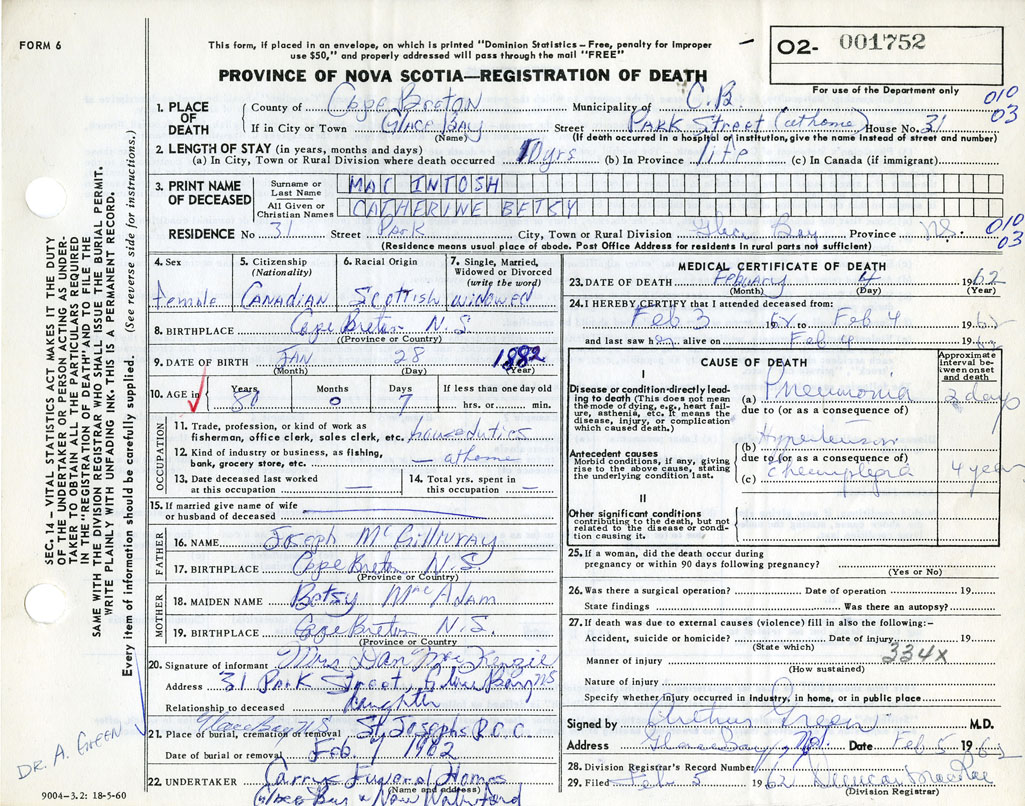 FORM 6
This form, if placed in an envelope, on which is printed "Dominion Statistics – Free, penalty for improper
use $50," and properly addressed will pass through the mail "FREE"
PROVINCE OF NOVA SCOTIA—REGISTRATION OF DEATH
02- 001752
For use of the Department only
1. PLACE OF DEATH
County of Cape Breton Municipality of C.B. 010
If in City or Town Glace Bay Street Park Street (at home) House No. 31 03
(Name) (If death occurred in hospital or institution, give the name instead of street and number)
2. LENGTH OF STAY (in years, months and days)
(a) In City, Town or Rural Division where death occurred 10 yrs (b) In Province life (c) In Canada (if immigrant)
3. PRINT NAME OF DECEASED
Surname or Last Name MAC INTOSH
All Given or Christian Names CATHERINE BETSY
RESIDENCE No 31 Street Park City, Town or Rural Division Glace Bay Province NS. 010
03
(Residence means usual place of abode. Post Office Address for residents in rural parts not sufficient)
4. Sex female
5. Citizenship (Nationality) Canadian
6. Racial Origin Scottish
7. Single, Married, Widowed or Divorced (write the word) widowed
8. BIRTHPLACE Cape Breton N.S.
(Province or Country)
9. DATE OF BIRTH JAN 28 1882
(Month) (Day) (Year)
10. AGE in Years 80 Months 0 Days 7 If less than one day old hrs. or min.
OCCUPATION
11. Trade, profession, or kind of work as
fisherman, office clerk, sales clerk, etc. house duties
12. Kind of industry or business, as fishing,
bank, grocery store, etc. — at home
13. Date deceased last worked
at this occupation —
14. Total yrs. spent in
this occupation —
15. If married give name of wife
or husband of deceased
FATHER
16. NAME Joseph McGillivray
17. BIRTHPLACE Cape Breton N.S.
(Province or Country)
MOTHER
18. MAIDEN NAME Betsy MacAdam
19. BIRTHPLACE Cape Breton N.S.
(Province or Country
20. Signature of informant Mrs Dan MacKenzie
Address 31 Park Street, Glace Bay NS
Relationship to deceased daughter
21. Place of burial, cremation or removal Glace Bay NS St Josephs P.C.C.
Date of burial or removal Feb. 7 1962
22. UNDERTAKER Carrys Funeral Homes
(Name and address)
Glace Bay & New Waterford
9004-3.2: 18-5-60
MEDICAL CERTIFICATE OF DEATH
23. DATE OF DEATH February 4 1962
(Month) (Day) (Year)
24. I HEREBY CERTIFY that I attended deceased from:
Feb 3 1962 to Feb 4 1962
and last saw her alive on Feb 4 1962
CAUSE OF DEATH
Approximate interval between onset and death
I
Disease or condition directly leading to death (This does not mean the mode of dying, e.g., heart failure, asthenia, etc. It means the disease, injury, or complication which caused death.)
(a) Pneumonia 2 days
due to (or as a consequence of)
Antecedent causes
Morbid conditions, if any, giving rise to the above cause, stating the underlying condition last.
(b) Hypertension
due to (or as a consequence of)
(c) c hemiplegia 4 years
II
Other significant conditions
contributing to the death, but not related to the disease or condition causing it.
25. If a woman, did the death occur during
pregnancy or within 90 days following pregnancy?
(Yes or No)
26. Was there a surgical operation? Date of operation 19
State findings Was there an autopsy?
27. If death was due to external causes (violence) fill in also the following:–
Accident, suicide or homicide? Date of injury 19
(State which)
334X
Manner of injury
(How sustained)
Nature of injury
Specify whether injury occurred in industry, in home, or in public place
Signed by Arthur Green M.D.
Address Glace Bay, N.S. Date Feb 5 1962
28. Division Registrar's Record Number
29. Filed Feb 5 1962 Duncan MacRae
(Division Registrar)
SEC. 14 – VITAL STATISTICS ACT MAKES IT THE DUTY
OF THE UNDERTAKER OR PERSON ACTING AS UNDER-
TAKER TO OBTAIN ALL THE PARTICULARS REQUIRED
IN THE "REGISTRATION OF DEATH" AND TO FILE THE
SAME WITH THE DIVISION REGISTRAR WHO SHALL ISSUE THE BURIAL PERMIT.
WRITE PLAINLY WITH UNFADING INK. THIS IS A PERMANENT RECORD.
Every item of information should be carefully supplied. (See reverse side for instructions.)
DR. A. GREEN